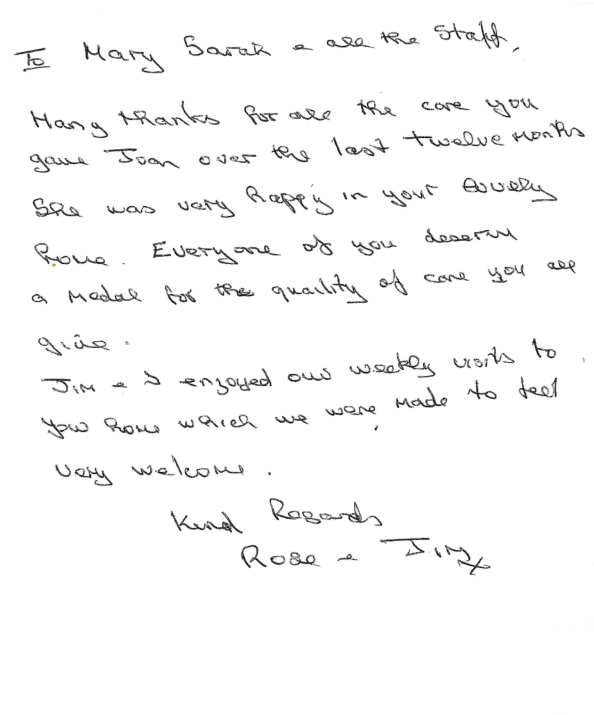 To Mary Sarah & all the Staff,
Many thanks for all the care you
gave Joan over the last twelve months
She was very happy in your lovely
home. Everyone of you deserve
a medal for the quality of care you all
give.
Jim & I enjoyed our weekly visits to
your home which we were made to feel
very welcome.
Kind Regards
Rose & Jim x